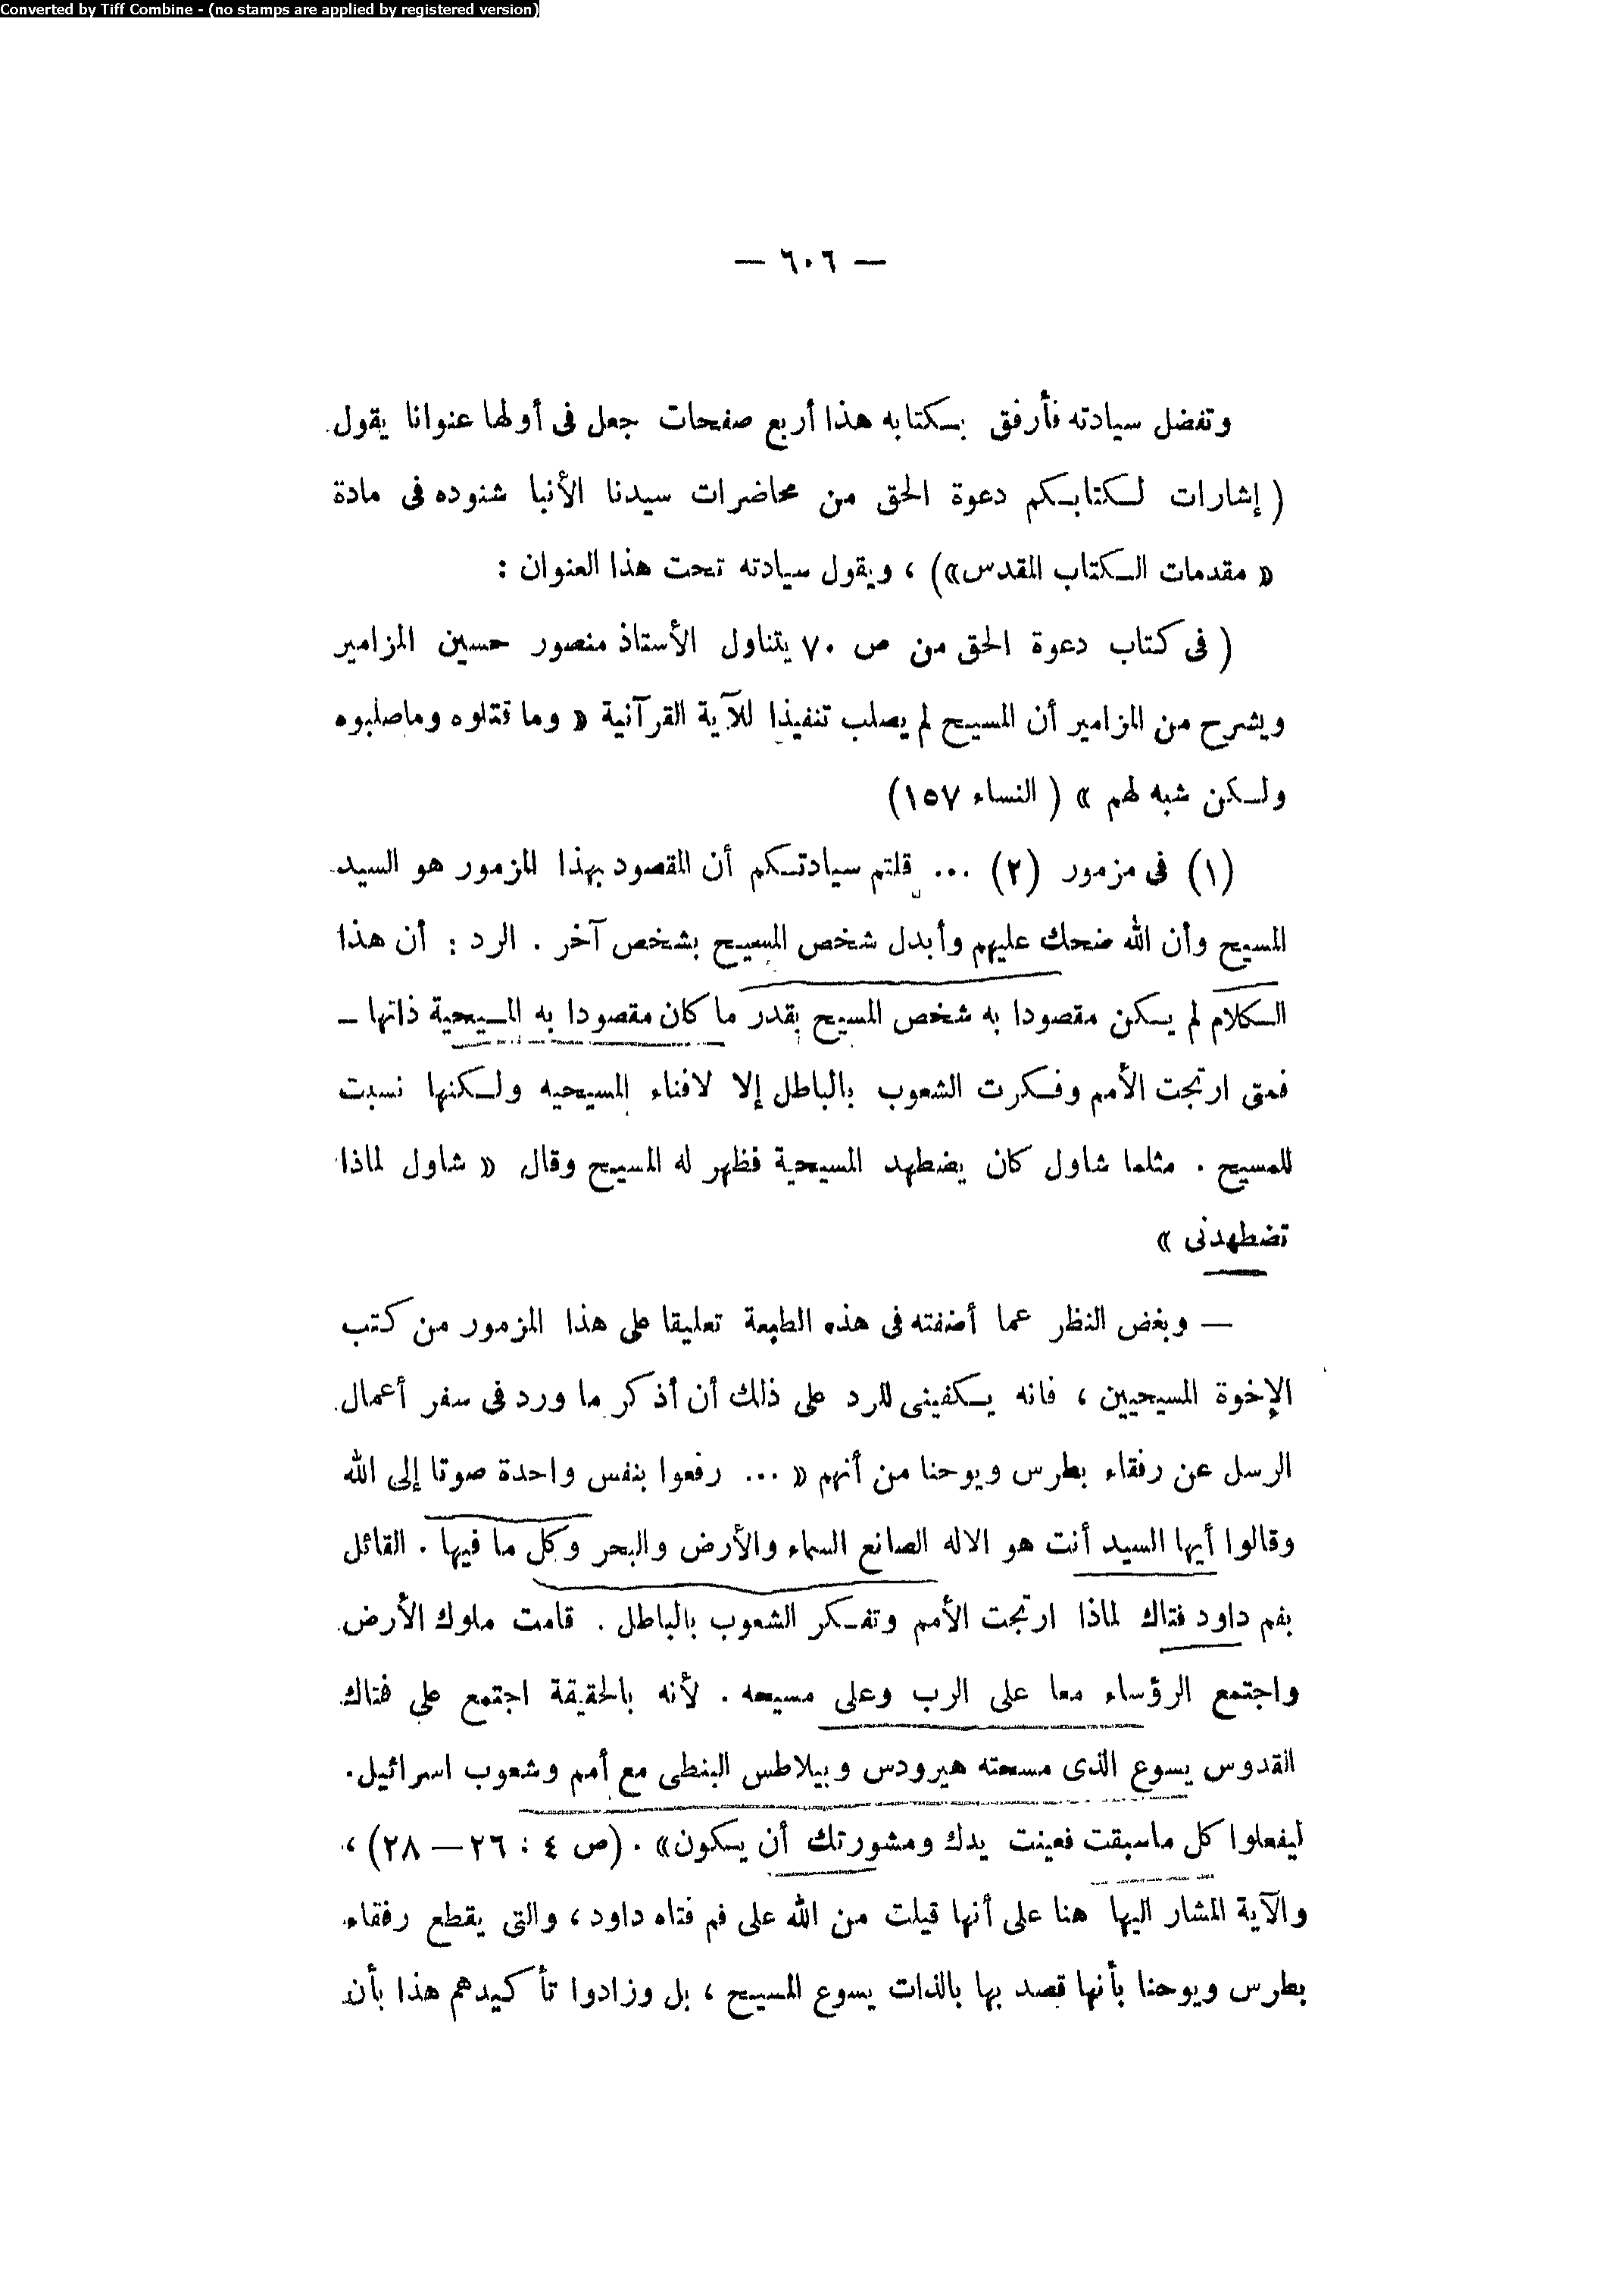 Converted by Tiff Combine - (no stamps are applied by registered version)
— ٦٠٦ —
وتفضل سيادته فأرفق بكتابه هذا أربع صفحات جعل فى أولها عنوانا يقول
( إشارات لكتابكم دعوة الحق من محاضرات سيدنا الأنبا شنوده فى مادة
« مقدمات الكتاب المقدس») ، ويقول سيادته تحت هذا العنوان :
( فى كتاب دعوة الحق من ص ٧٠ يتناول الأستاذ منصور حسين المزامير
ويشرح من المزامير أن المسيح لم يصلب تنفيذا للآية القرآنية « وما قتلوه وماصلبوه
ولكن شبه لهم » ( النساء ١٥٧)
(١) فى مزمور (٢) ... قلتم سيادتكم أن المقصود بهذا المزمور هو السيد
المسيح وأن الله ضحك عليهم وأبدل شخص المسيح بشخص آخر . الرد : أن هذا
الكلام لم يكن مقصودا به شخص المسيح بقدر ما كان مقصودا به المسيحية ذاتها —
فمتى ارتجت الأمم وفكرت الشعوب بالباطل إلا لافناء المسيحيه ولكنها نسبت
للمسيح . مثلما شاول كان يضطهد المسيحية فظهر له المسيح وقال « شاول لماذا
تضطهدنى »
— وبغض النظر عما أضفته فى هذه الطبعة تعليقا على هذا المزمور من كتب
الإخوة المسيحيين ، فانه يكفينى للرد على ذلك أن أذكر ما ورد فى سفر أعمال
الرسل عن رفقاء بطرس ويوحنا من أنهم « ... رفعوا بنفس واحدة صوتا إلى الله
وقالوا أيها السيد أنت هو الاله الصانع السماء والأرض والبحر وكل ما فيها . القائل
بفم داود فتاك لماذا ارتجت الأمم وتفكر الشعوب بالباطل . قامت ملوك الأرض
واجتمع الرؤساء معا على الرب وعلى مسيحه . لأنه بالحقيقة اجتمع على فتاك
القدوس يسوع الذى مسحته هيرودس وبيلاطس البنطى مع أمم وشعوب اسرائيل .
ليفعلوا كل ماسبقت فعينت يدك ومشورتك أن يكون» . (ص ٤ : ٢٦ — ٢٨) ،
والآية المشار اليها هنا على أنها قيلت من الله على فم فتاه داود ، والتى يقطع رفقاء
بطرس ويوحنا بأنها قصد بها بالذات يسوع المسيح ، بل وزادوا تأكيدهم هذا بأن